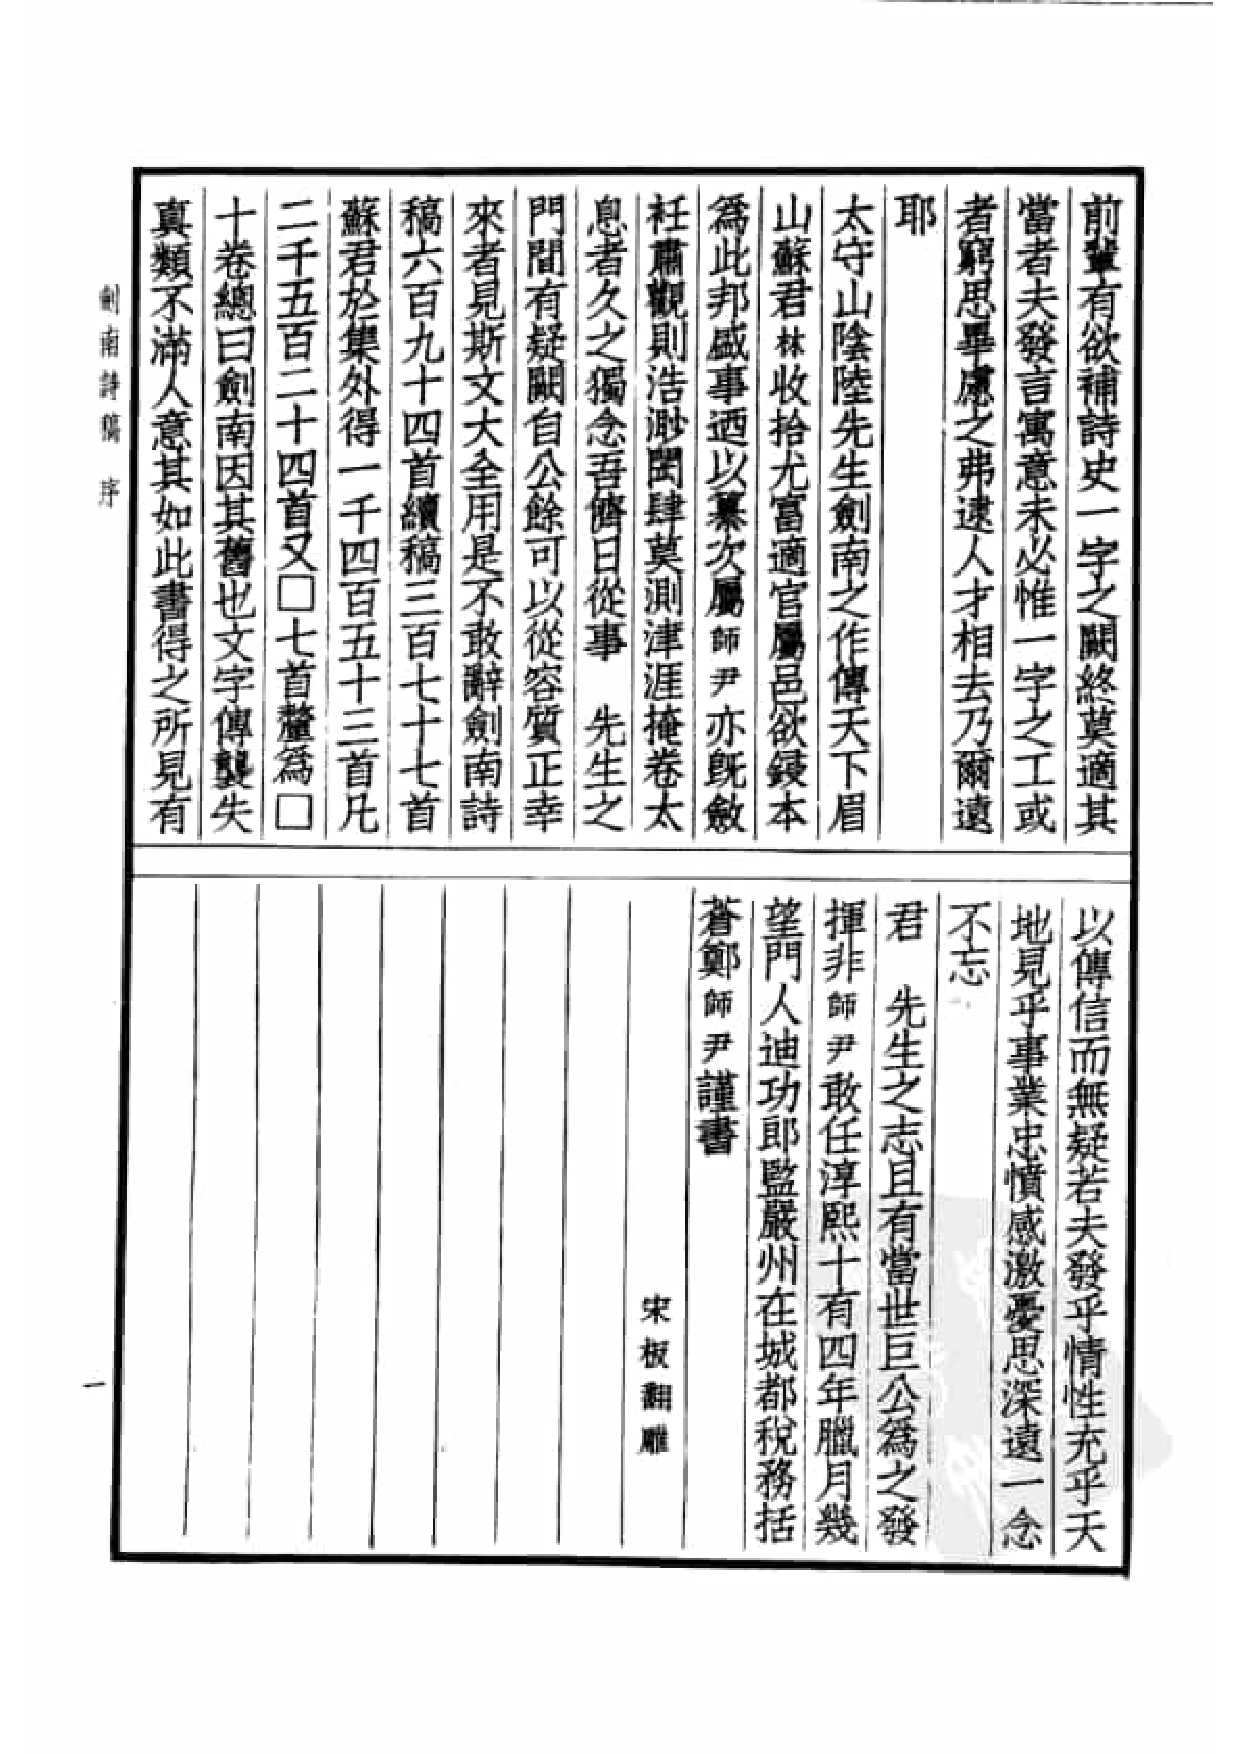 前輩有欲補詩史一字之闕終莫適其
當者夫發言寓意未必惟一字之工或
者窮思畢慮之弗逮人才相去乃爾遠
耶
太守山陰陸先生劍南之作傳天下眉
山蘇君林收拾尤富適官屬邑欲鋟本
為此邦盛事迺以纂次屬師尹亦既斂
衽肅觀則浩渺閎肆莫測津涯掩卷太
息者久之獨念吾儕日從事　先生之
門間有疑闕自公餘可以從容質正幸
來者見斯文大全用是不敢辭劍南詩
稿六百九十四首續稿三百七十七首
蘇君於集外得一千四百五十三首凡
二千五百二十四首又□七首釐為□
十卷總曰劍南因其舊也文字傳襲失
真類不滿人意其如此書得之所見有
以傳信而無疑若夫發乎情性充乎天
地見乎事業忠憤感激憂思深遠一念
不忘
君　先生之志且有當世巨公為之發
揮非師尹敢任淳熙十有四年臘月幾
望門人迪功郎監嚴州在城都稅務括
蒼鄭師尹謹書
宋板翻雕
劍南詩稿　序
一